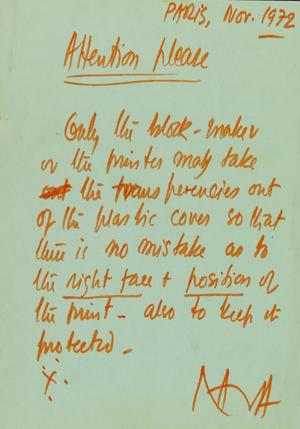 PARIS, Nov. 1972
Attention please
Only the block-maker
or the printer may take
out the transperencies out
of the plastic cover so that
there is no mistake as to
the right face + position of
the print - also to keep it
protected -